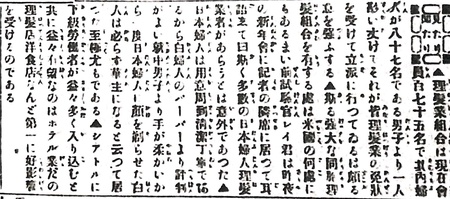 見たり聞たり
▲理髪業組合は現在會
員百七十五名で其內婦
人が八十七名である男子より一人
丈けでそれが皆理髪業の免狀
を受けて立派に行つてゐるは頗る
意を強ふする▲斯る強大な同胞理
髪組合を有する處は米國の何處に
もあるまい前試驗官レイ君は昨夜
の新年會に記者の隣席に居つて耳
語いて曰く多數の日本婦人理髪
業者があらうとは意外であつた▲
日本婦人は用意周到清潔丁寧であ
るから白婦人のバーバーより評判
がよい就中男子より手が柔かいか
ら一度日本婦人に顔を剃らせた白
人は必らず華主になると云つて居
つた至極尤もである▲シアトルに
下級勞働者が益々多く入り込むと
共に益々有望なのはホテル業だの
理髪店洋食店なんど第一に好影響
を受けるのである